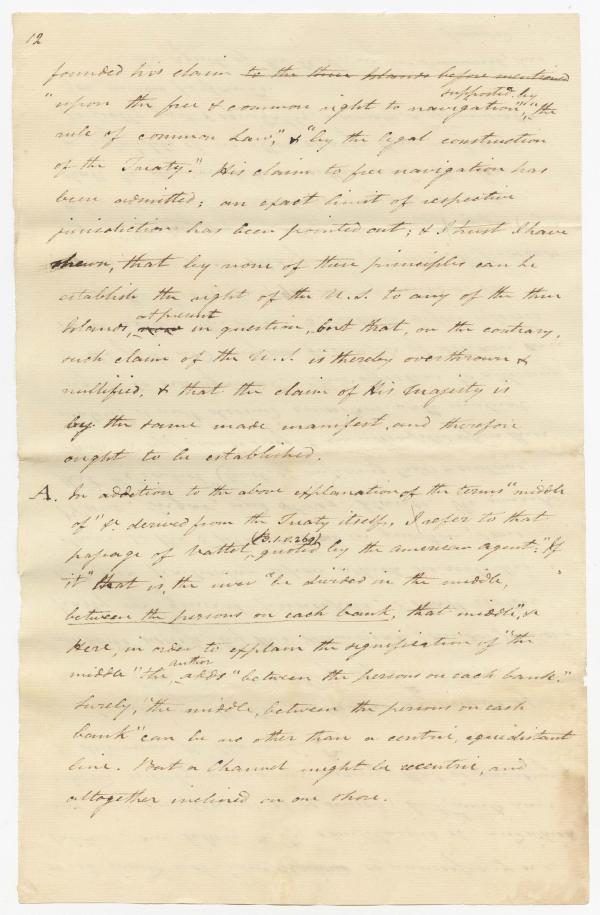 12
founded his claim to the three Islands before mentioned
"upon the free & common right to navigation", supported by "the
rule of common Law", & "by the legal construction
of the Treaty." His claim to free navigation has
been admitted; an exact limit of respective
jurisdiction has been pointed out; & I trust I have
shewn, that by none of these principles can he
establish the right of the U.S. to any of the three
Islands, now at present in question, but that, on the contrary,
such claim of the U.S. is thereby overthrown &
nullified, & that the claim of His Majesty is
by the same made manifest, and therefore
ought to be established.
A. In addition to the above explanation of the terms "middle
of" &c. derived from the Treaty itself, I refer to that
passage of Vattel, quoted by the American agent: "If
it" that is, the river "be divided in the middle,
between the persons on each bank, that middle", &
Here, in order to explain the signification of "the
middle" the author adds "between the persons on each bank."
Surely, "the middle, between the persons on each
bank" can be no other than a centric, equidistant
line. But a Channel might be eccentric, and
altogether inclined on one shore.